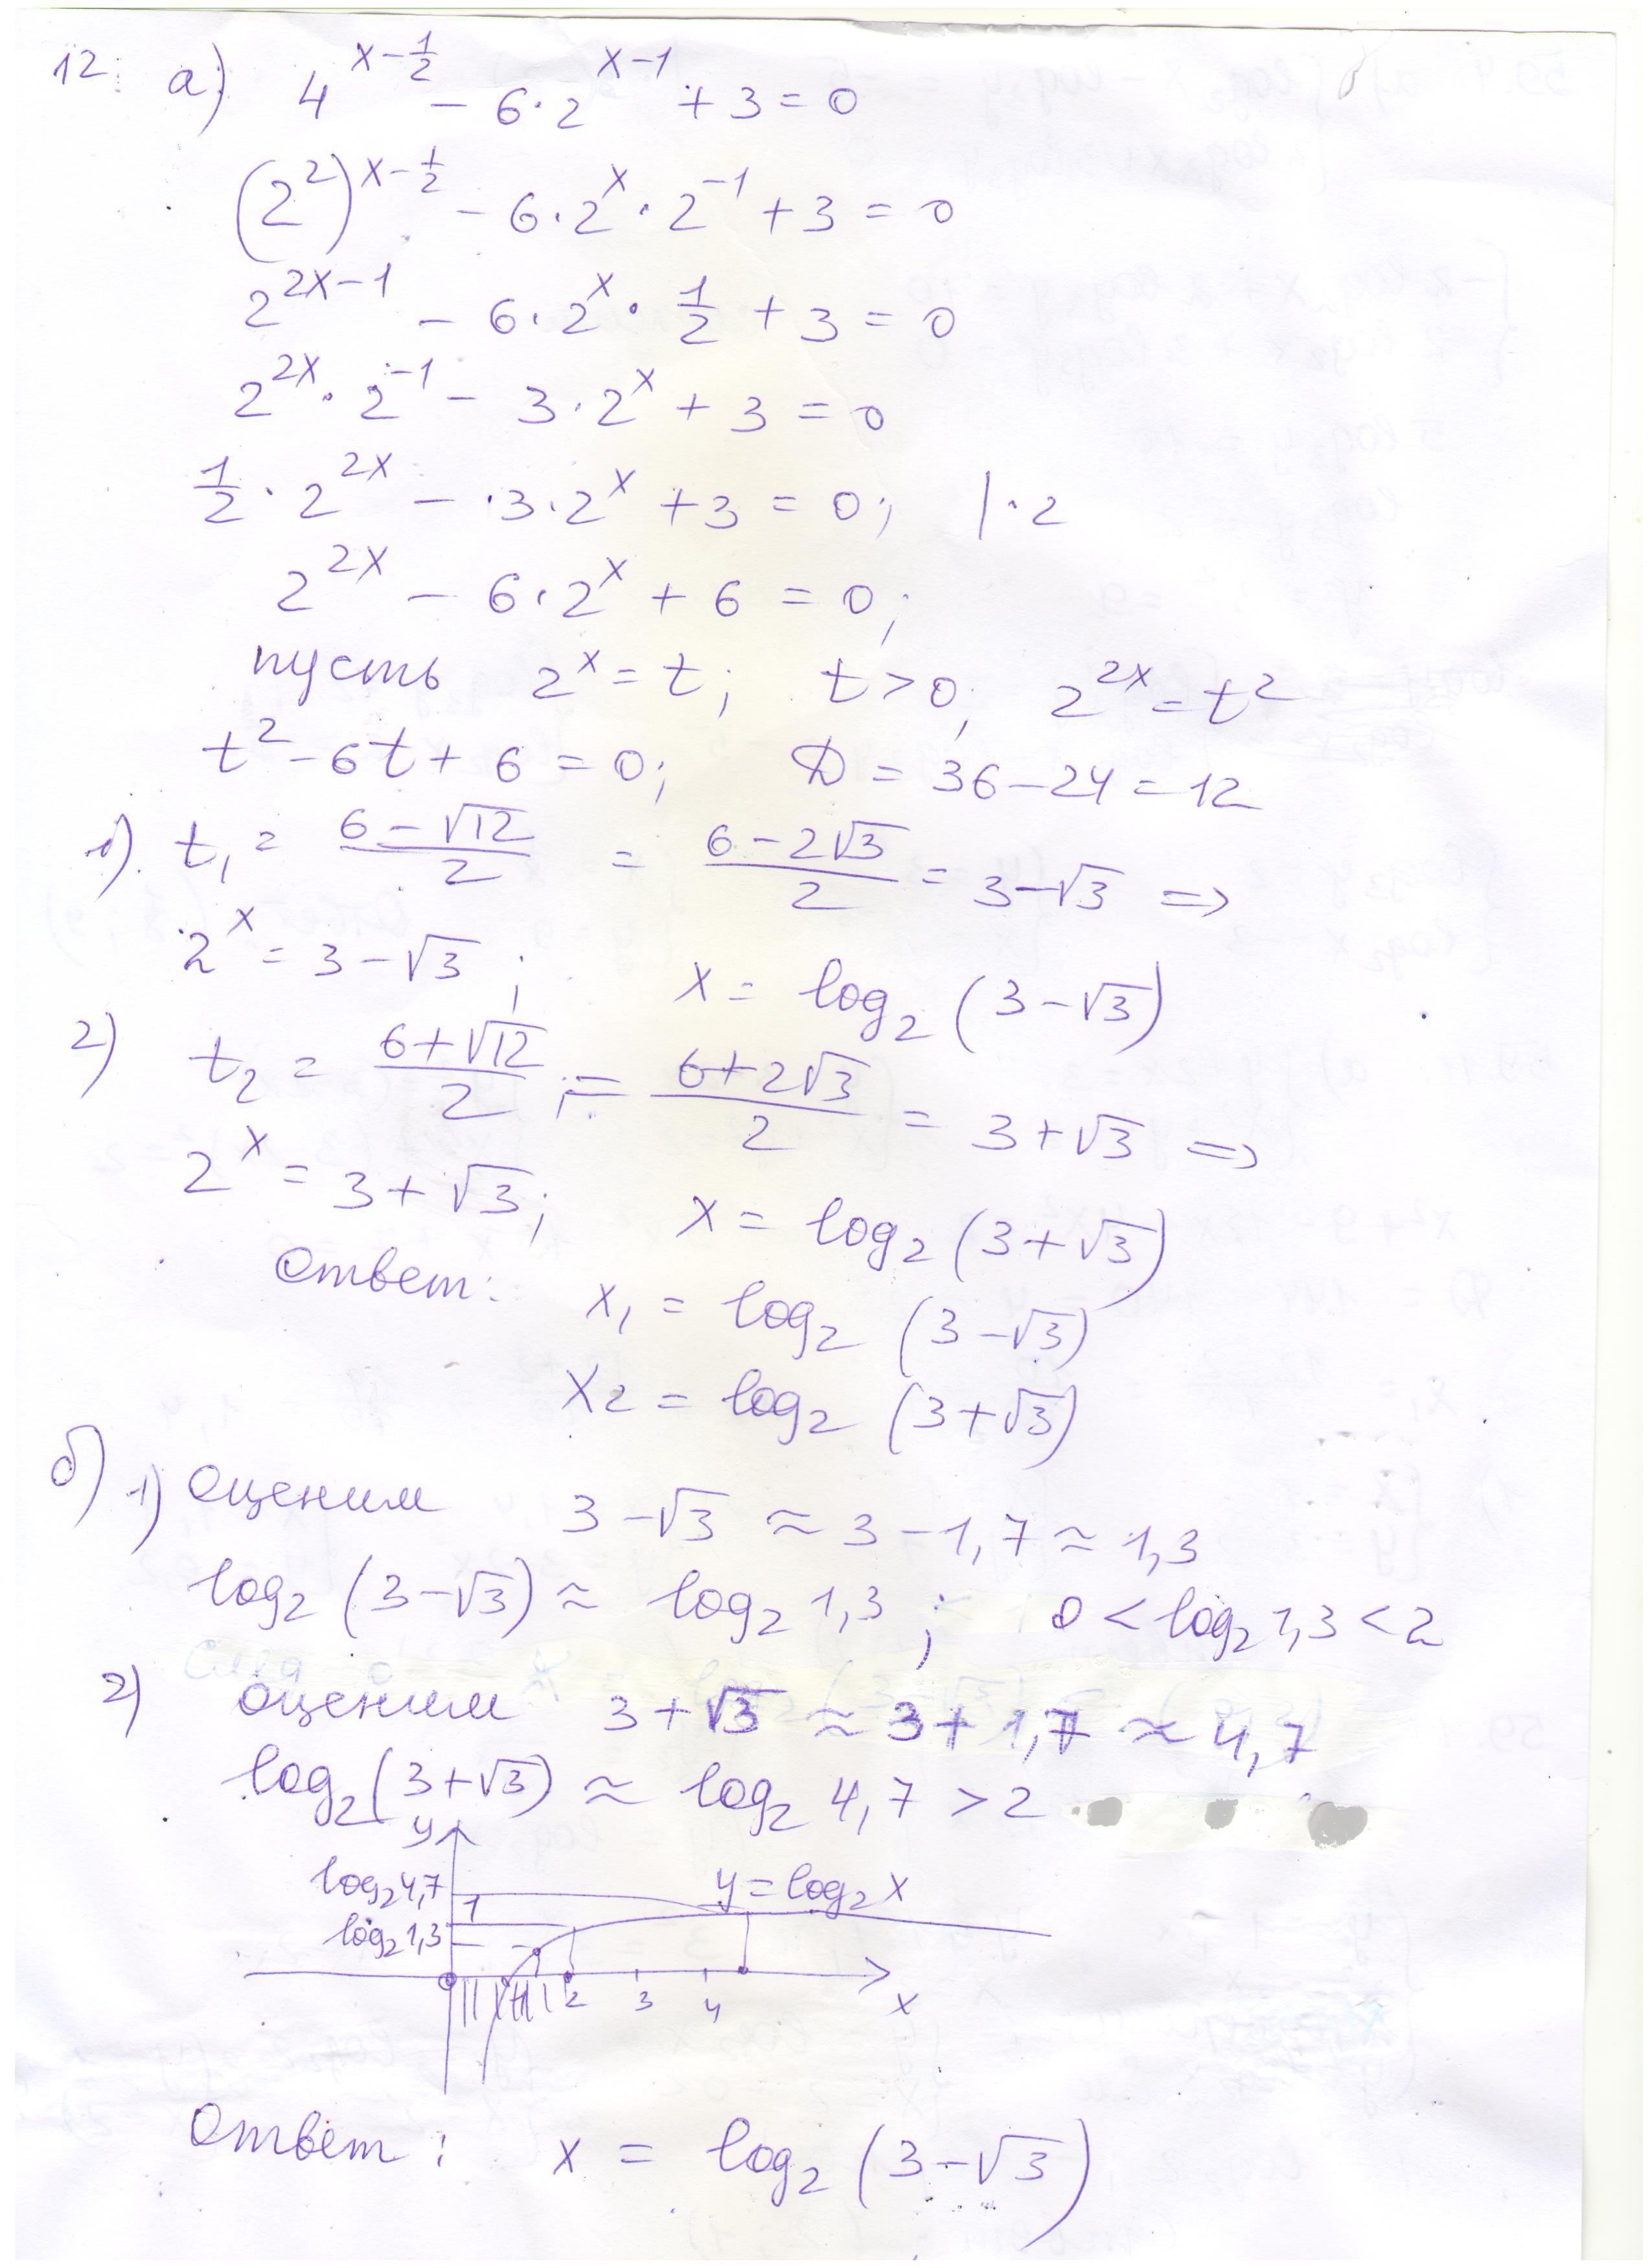 12. а) 4^(x-1/2) - 6·2^(x-1) + 3 = 0
(2^2)^(x-1/2) - 6·2^x·2^(-1) + 3 = 0
2^(2x-1) - 6·2^x·1/2 + 3 = 0
2^(2x)·2^(-1) - 3·2^x + 3 = 0
1/2·2^(2x) - ·3·2^x + 3 = 0; |·2
2^(2x) - 6·2^x + 6 = 0;
пусть 2^x = t; t > 0; 2^(2x) = t^2
t^2 - 6t + 6 = 0; D = 36 - 24 = 12
1). t₁ = (6-√12)/2 = (6-2√3)/2 = 3-√3 =>
2^x = 3-√3; x = log₂(3-√3)
2) t₂ = (6+√12)/2 = (6+2√3)/2 = 3+√3 =>
2^x = 3+√3; x = log₂(3+√3)
Ответ: x₁ = log₂(3-√3)
x₂ = log₂(3+√3)
б) 1) Оценим 3-√3 ≈ 3-1,7 ≈ 1,3
log₂(3-√3) ≈ log₂1,3; 0 < log₂1,3 < 2
2) оценим 3+√3 ≈ 3+1,7 ≈ 4,7
log₂(3+√3) ≈ log₂4,7 > 2
y
log₂4,7 1 y = log₂x
log₂1,3
2 3 4 x
Ответ: x = log₂(3-√3)